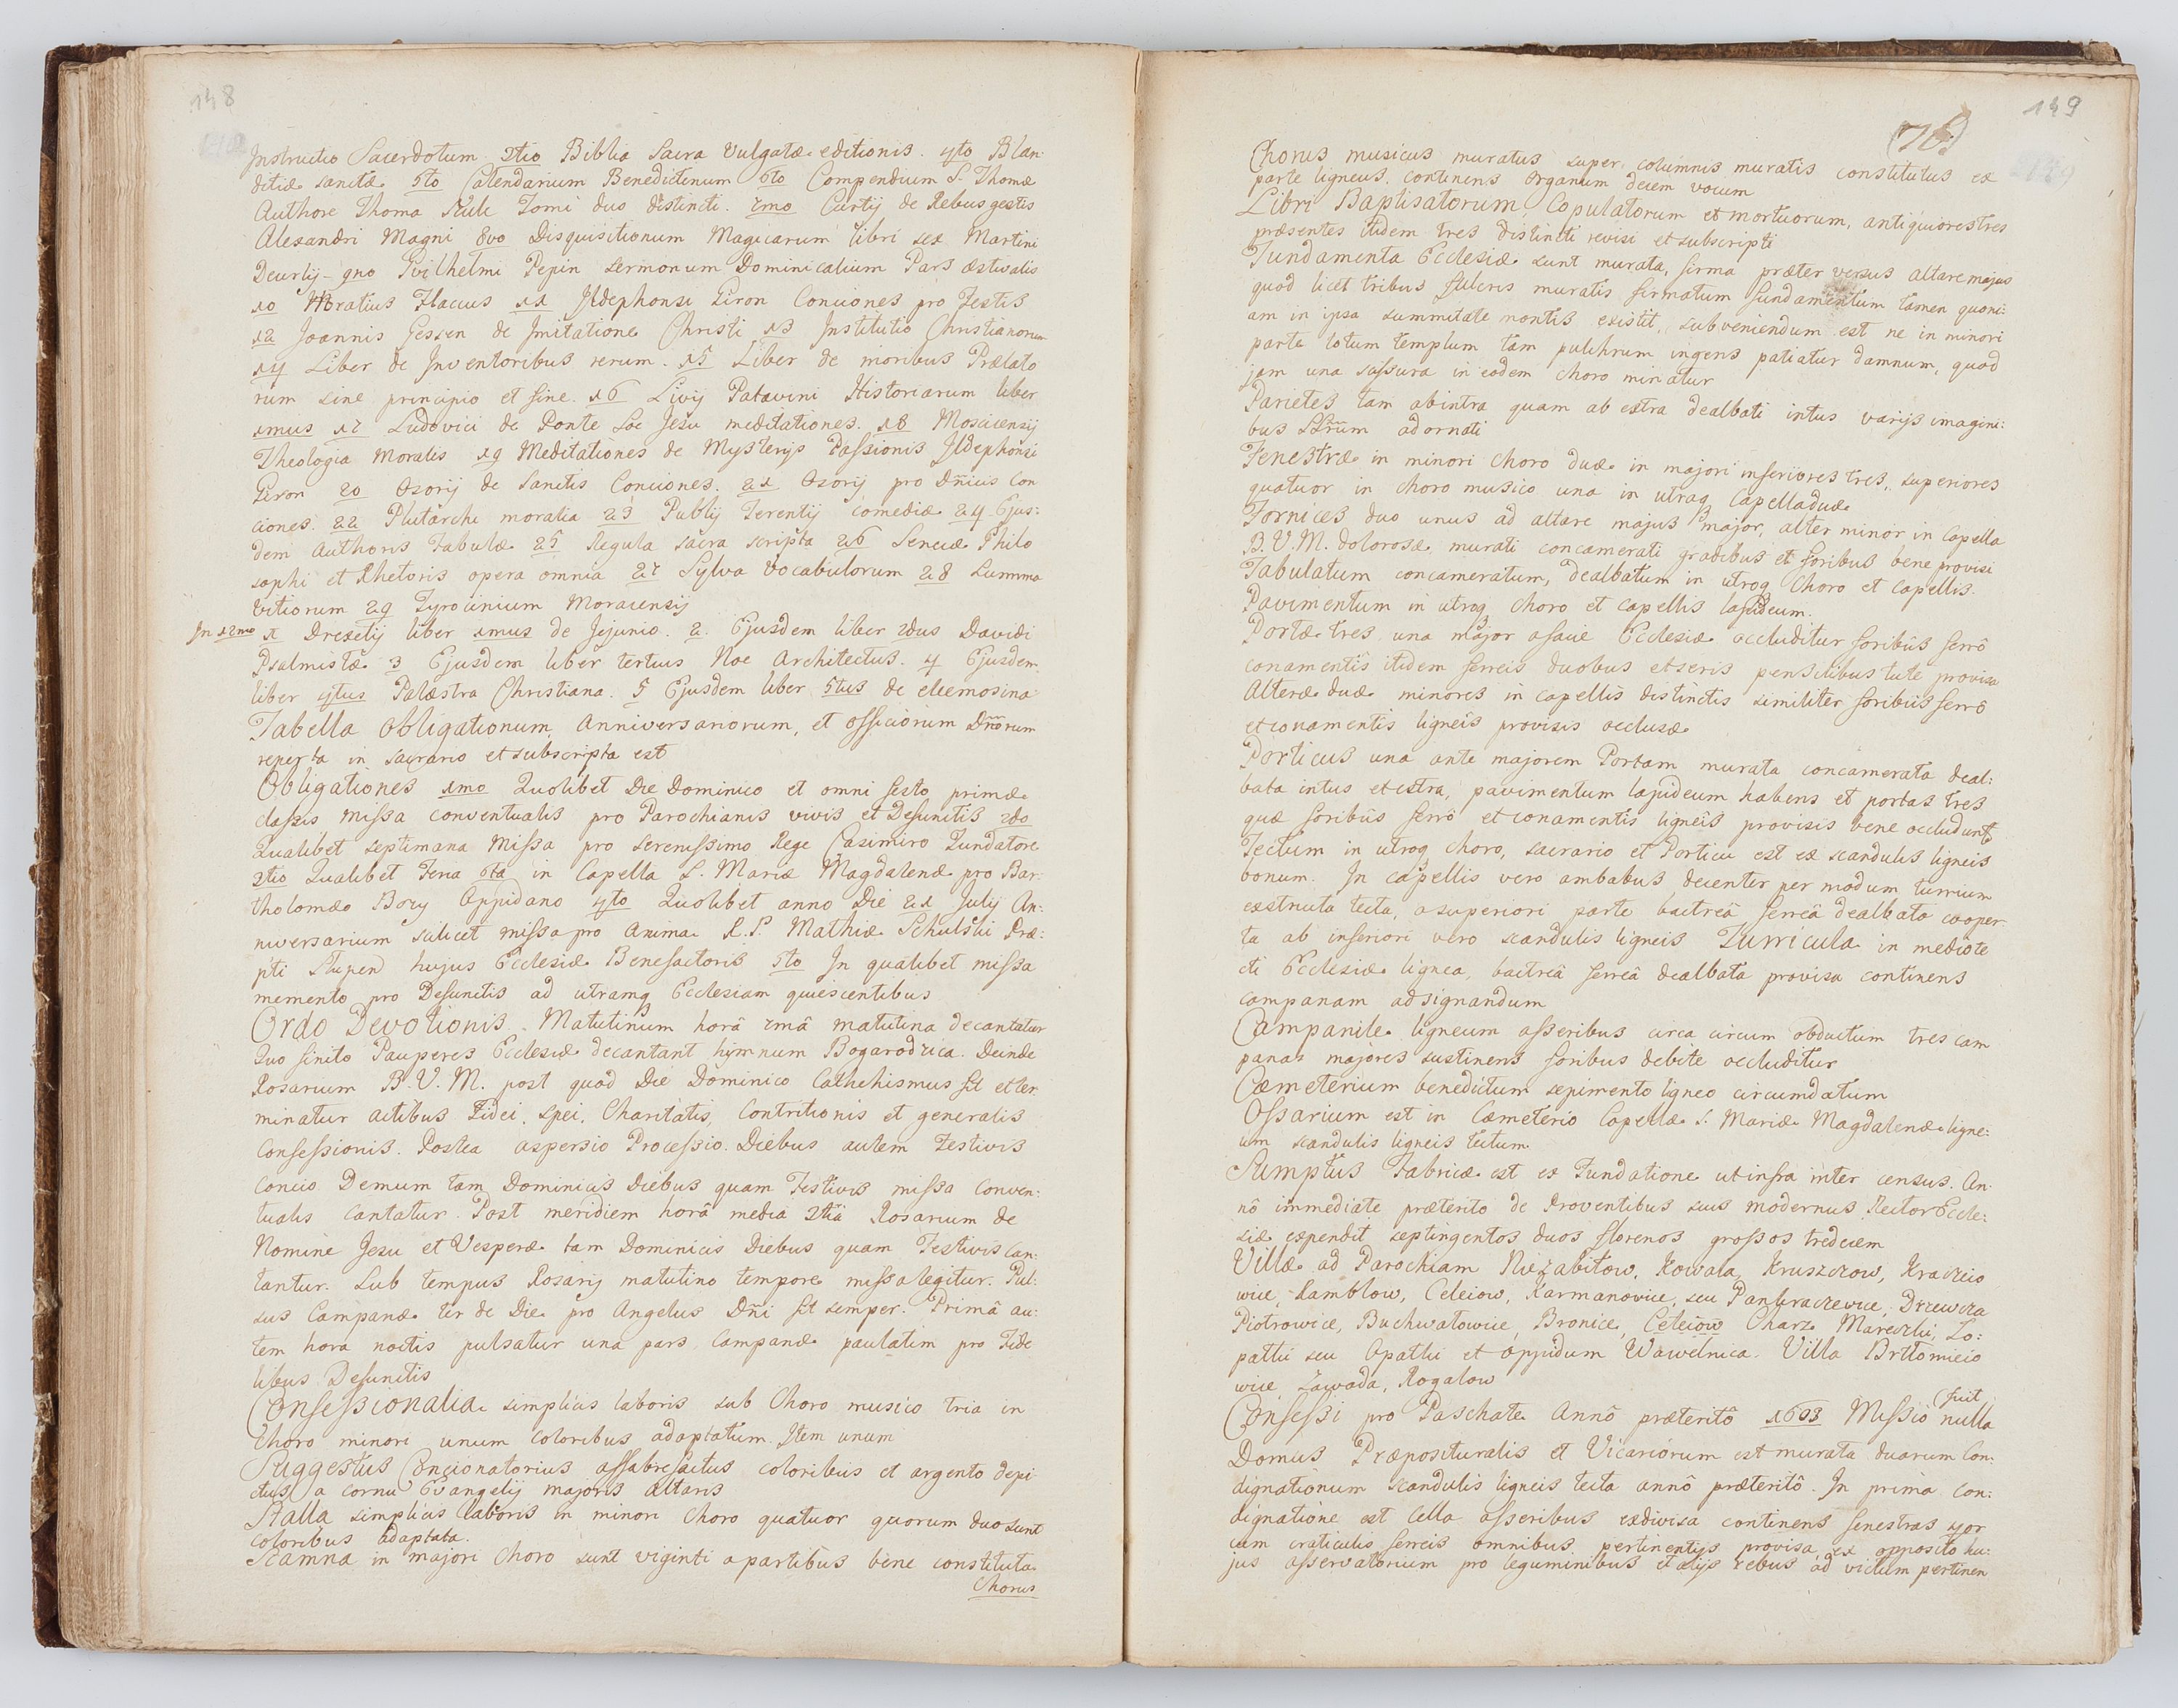 148
Instructio Sacerdotum 3tio Biblia Sacra Vulgatæ editionis. 4to Blan
ditiæ sanctæ 5to Calendarium Benedictinum 6to Compendium S. Thomæ
Authore Thoma Tomi duo distincti. 7mo Curtij de Rebus gestis
Alexandri Magni 8vo Disquisitionum Magicarum libri sex Martini
Deurlij 9no Gvilhelmi Pepin sermonum Dominicalium Pars æstivalis
10 Horatius Flaccus 11 Jldephonsi Giron Conciones pro Festis
12 Joannis Gessen de Jmitatione Christi 13 Institutio Christianorum
14 Liber de Jnventoribus rerum. 15 Liber de moribus Prælato
rum sine principio et fine. 16 Livij Patavini Historiarum liber
1mus 17 Ludovici de Ponte Soc Jesu meditationes. 18 Moscicensij
Theologia Moralis 19 Meditationes de Mysterijs Passionis Jldephonsi
Giron 20 Osorij de Sanctis Conciones. 21 Osorij pro Dñicis Con
ciones. 22 Plutarchi moralia 23 Publij Terentij comediæ 24 Ejus:
dem Authoris Fabulæ 25 Regula sacra scripta 26 Senecæ Philo
sophi et Rhetoris opera omnia 27 Sylva Vocabulorum 28 Summa
Vitiorum 29 Tyrocinium Moracensij
In 12mo 1 Drexelij liber 1mus de Jejunio. 2. Ejusdem liber 2dus Davidi
Psalmistæ 3 Ejusdem liber tertius Noe Architectus. 4 Ejusdem
liber 4tus Palæstra Christiana. 5 Ejusdem liber 5tus de eleemosina
Tabella Obligationum Anniversariorum, et officiorum Dñorum
reperta in sacrario et subscripta est
Obligationes 1mo Quolibet Die Dominico et omni festo primæ
classis missa conventualis pro Parochianis vivis et Defunctis 2do
Qualibet septimana Missa pro serenissimo Rege Casimiro Fundatore
3tio Qualibet Feria 6ta in Capella S. Mariæ Magdalenæ pro Bar
tholomæo Bory Oppidano 4to Quolibet anno Die 21 July An:
niversarium scilicet missa pro Anima R. P. Mathiæ Schulski Præ:
pti Stupen hujus Ecclesiæ Benefactoris 5to In qualibet missa
memento pro Defunctis ad utramq Ecclesiam quiescentibus
Ordo Devotionis. Matutinum horâ 7mâ matutina decantatur
Quo finito Pauperes Ecclesiæ decantant hymnum Bogarodzica. Deinde
Rosarium B. V. M. post quod Die Dominico Cathehismus fit et ter
minatur actibus Fidei, spei, Charitatis, Contritionis et generalis
Confessionis. Postea aspersio Processio. Diebus autem Festivis
Concio Demum tam Dominicis Diebus quam Festivis missa Conven:
tualis Cantatur. Post meridiem horâ media 3tiâ Rosarium de
Nomine Jesu et Vesperæ tam Dominicis Diebus quam Festivis Can:
tantur. Sub tempus Rosarij matutino tempore missa legitur. Pul:
sus Campanæ ter de Die pro Angelus Dñi fit semper. Primâ au:
tem hora noctis pulsatur una pars Campanæ paulatim pro Fide
libus Defunctis
Confessionalia simplicis laboris sub Choro musico tria in
Choro minori unum coloribus adaptatum. Item unum
Suggestus Concionatorius affabrefactus coloribus et argento depi
ctus a cornu Evangelij majoris altaris
Stalla simplicis laboris in minori Choro quatuor quorum duo sunt
coloribus adaptata.
Scamna in majori Choro sunt viginti a partibus bene constituta
Chorus
149
(76)
Chorus musicus muratus super columnis muratis constitutus ex
parte ligneus. continens Organum decem vocum
Libri Baptisatorum, Copulatorum et mortuorum, antiquiores tres
præsentes itidem tres distincti revisi et subscripti
Fundamenta Ecclesiæ sunt murata, firma præter versus altare majus
quod licet tribus fulcris muratis firmatum fundamentum tamen quoni:
am in ipsa summitate montis existit, subveniendum est ne in minori
parte totum templum tâm pulchrum ingens patiatur damnum, quod
jam una fissura in eodem choro minatur
Parietes tam ab intra quam ab extra dealbati intus varijs imagini:
bus SSrũm adornati
Fenestræ in minori choro duæ in majori inferiores tres, superiores
quatuor in choro musico una in utraq Capella duæ
Fornices duo unus ad altare majus major, alter minor in Capella
B. V. M. dolorosæ murati concamerati gradibus et foribus bene provisi
Tabulatum concameratum, dealbatum in utroq Choro et capellis.
Pavimentum in utroq choro et capellis lapideum.
Portæ tres una major a facie Ecclesiæ occluditur foribus ferrô
conamentis itidem ferreis duobus et seris pensilibus tute provisa
Alteræ duæ minores in capellis distinctis similiter foribus ferrô
et conamentis ligneis provisis occlusæ
Porticus una ante majorem Portam murata concamerata deal:
bata intus et extra, pavimentum lapideum habens et portas tres
quæ foribus ferrô et conamentis ligneis provisis bene occludunt
Tectum in utroq choro, sacrario et Porticu est ex scandulis ligneis
bonum. In capellis vero ambabus decenter per modum turrium
exstructa tecta, a superiori parte bactreâ ferreâ dealbata cooper
ta ab inferiori vero scandulis ligneis Turricula in medio te
cti Ecclesiæ lignea, bactreâ ferreâ dealbata provisa continens
campanam ad signandum
Campanile ligneum asseribus circa circum obductum tres cam
panas majores sustinens foribus debite occluditur
Cæmeterium benedictum sepimento ligneo circumdatum
Ossarium est in Cæmeterio Capellæ S. Mariæ Magdalenæ ligne:
um scandulis ligneis tectum
Sumptus Fabricæ est ex Fundatione ut infra inter census. An:
nô immediate præterito de Proventibus suis modernus Rector Eccle:
siæ expendit septingentos duos florenos grossos tredecim
Villæ ad Parochiam Niezabitow, Kowala, Kruszczow, Kraczeio
wice, Ramblow, Celeiow, Karmanovice, seu Pankraczewice, Drzewcza
Piotrowice, Buchwałowice, Bronice, Celeiow Charz Mareczki, Lo:
patki seu Opatki et oppidum Wawelnica. Villa Brttomieio
wice, Zawada, Rogalow
Confessi pro Paschate Annô præteritô 1603 Missio fuit nulla
Domus Præposituralis et Vicariorum est murata duarum Con:
dignationum scandulis ligneis tecta annô præteritô. In prima Con:
dignatione est Cella asseribus exdivisa continens fenestras 4or
cum craticulis ferreis omnibus pertinentijs provisa, ex opposito hu:
jus asservatorium pro leguminibus et alijs rebus ad victum pertinen